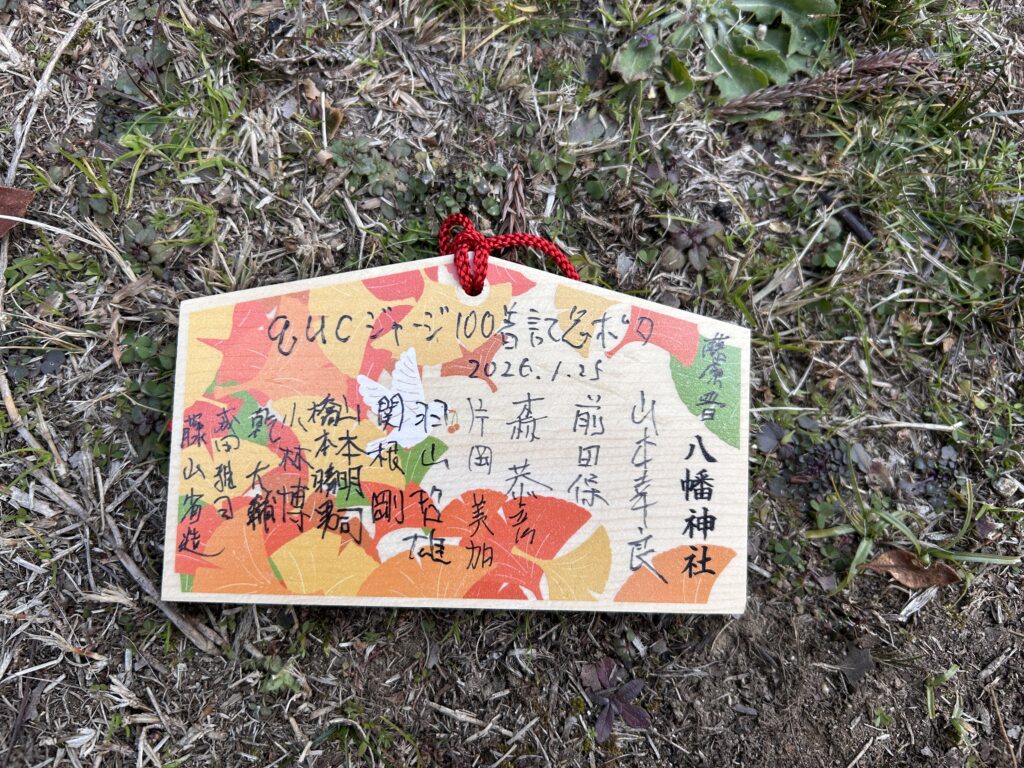 qucジャージ100着記念ポタ
2026.1.25
八幡神社
山本幸良
前田保
森 恭彦
片岡 美加
羽山 哲雄
関根 剛
山本明司
橋本勝男
小林博
乾 大輔
藤山省造